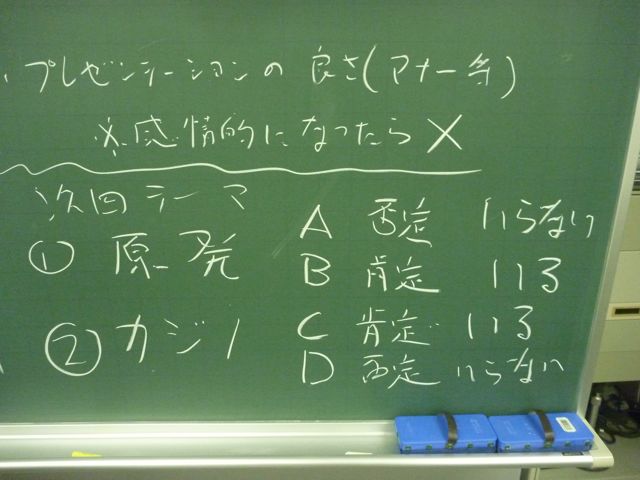 ・プレゼンテーションの良さ(マナー等)
※感情的になったら×
次回テーマ
① 原発
② カジノ
A 否定 いらない
B 肯定 いる
C 肯定 いる
D 否定 いらない